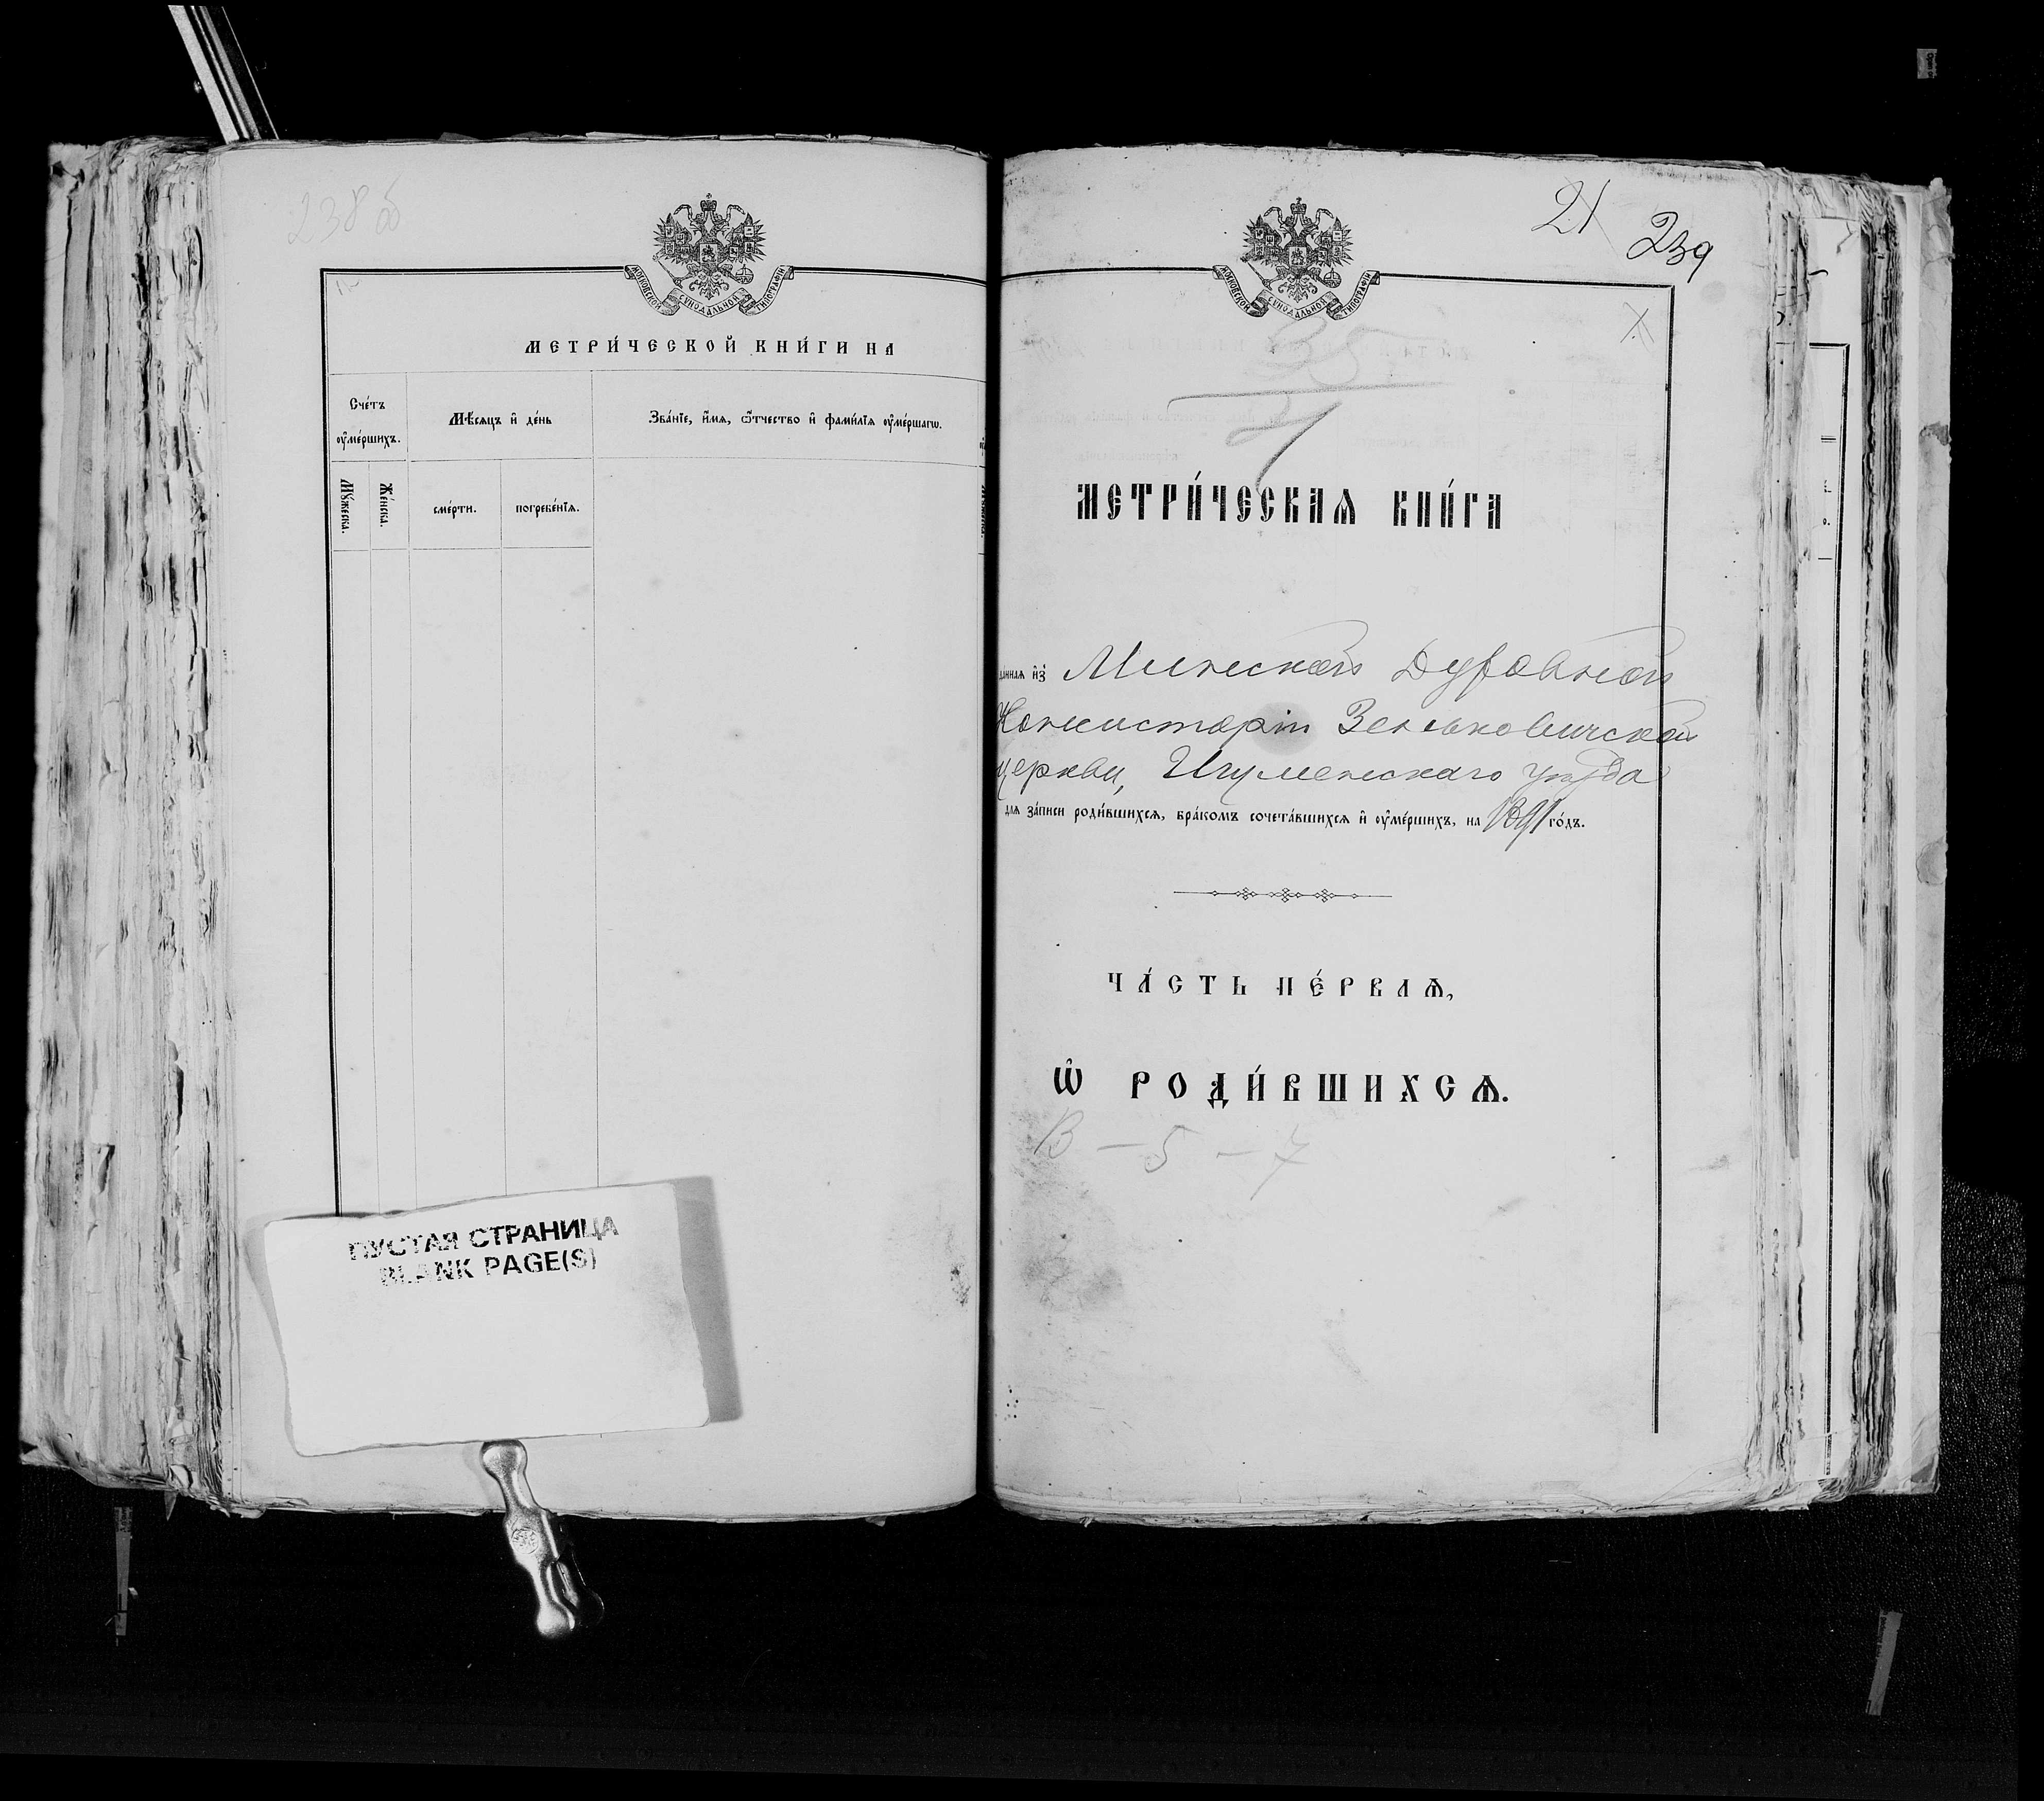 238 об
МОСКОВСКОЙ СУНОДАЛЬНОЙ ТИПОГРАФІИ
МЕТРИ́ЧЕСКОЙ КНИ́ГИ НА
Сче́тъ ᲂу҆ме́ршихъ.
Мѣ́сяцъ и҆ де́нь
Зва́нїе, и҆́мя, ѻ҆́тчество и҆ фами́лїя ᲂу҆ме́ршагѡ.
Му́жеска.
Же́нска.
сме́рти.
погребе́нїя.
ПУСТАЯ СТРАНИЦА
BLANK PAGE(S)
21
239
МОСКОВСКОЙ СУНОДАЛЬНОЙ ТИПОГРАФІИ
МЕТРИ́ЧЕСКАѦ КНИ́ГА
да́нная и҆з̾ Минской Духовной
Консисторіи Зеньковичской
церкви, Игуменскаго уѣзда
для за́писи роди́вшихся, бра́комъ сочета́вшихся и҆ ᲂу҆ме́ршихъ, на 1891 го́дъ.
ЧА́СТЬ ПЕ́РВАѦ,
Ѡ҆ РОДИ́ВШИХСѦ.
В – 5 – 7